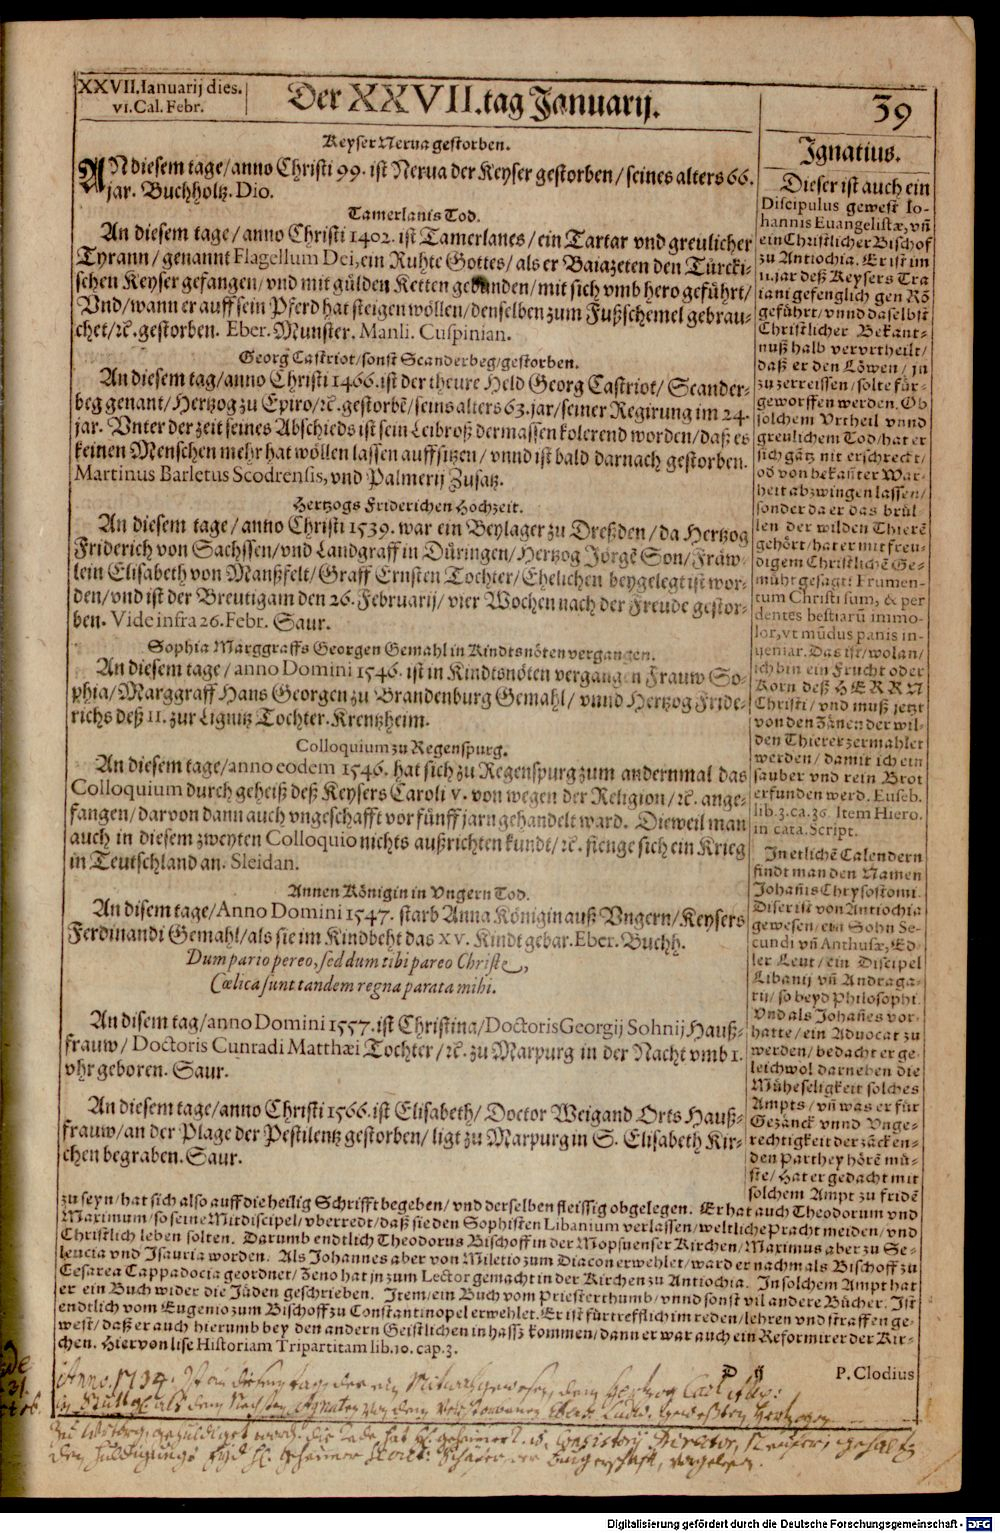 XXVII. Ianuarij dies.
vi. Cal. Febr.
Der XXVII. tag Januarij.
39
Keyser Nerua gestorben.
AN diesem tage/anno Christi 99. ist Nerua der Keyser gestorben/ seines alters 66.
jar. Buchholtz. Dio.
Tamerlanis Tod.
An diesem tage/ anno Christi 1402. ist Tamerlanes/ ein Tartar vnd greulicher
Tyrann/ genannt Flagellum Dei, ein Ruhte Gottes/ als er Baiazeten den Türcki-
schen Keyser gefangen/ vnd mit gülden Ketten gebunden/ mit sich vmb hero geführt/
Vnd/ wann er auff sein Pferd hat steigen wöllen/ denselben zum Fußschemel gebrau-
chet/ ꝛc. gestorben. Eber. Munster. Manli. Cuspinian.
Georg Castriot/ sonst Scanderbeg/ gestorben.
An diesem tag/anno Christi 1466. ist der theure Held Georg Castriot/ Scander-
beg genant/ Hertzog zu Epiro/ ꝛc. gestorbē/ seins alters 63. jar/ seiner Regirung im 24.
jar. Vnter der zeit seines Abschieds ist sein Leibroß dermassen kolerend worden/ daß es
keinen Menschen mehr hat wöllen lassen auffsitzen/ vnnd ist bald darnach gestorben.
Martinus Barletus Scodrensis, vnd Palmerij Zusatz.
Hertzogs Friderichen Hochzeit.
An diesem tage/ anno Christi 1539. war ein Beylager zu Dreßden/ da Hertzog
Friderich von Sachssen/ vnd Landgraff in Düringen/ Hertzog Jörgē Son/ Fräw-
lein Elisabeth von Manßfelt/ Graff Ernsten Tochter/ Ehelichen beygelegt ist wor-
den/ vnd ist der Breutigam den 26. Februarij/ vier Wochen nach der Freude gestor-
ben. Vide infra 26. Febr. Saur.
Sophia Marggraffs Georgen Gemahl in Kindtsnöten vergangen.
An diesem tage/ anno Domini 1546. ist in Kindtsnöten vergangen Frauw So-
phia/ Marggraff Hans Georgen zu Brandenburg Gemahl/ vnnd Hertzog Fride-
richs deß 11. zur Lignitz Tochter. Krentzheim.
Colloquium zu Regenspurg.
An diesem tage/anno eodem 1546. hat sich zu Regenspurg zum andernmal das
Colloquium durch geheiß deß Keysers Caroli v. von wegen der Religion/ ꝛc. ange-
fangen/ darvon dann auch vngeschafft vor fünff jarn gehandelt ward. Dieweil man
auch in diesem zweyten Colloquio nichts außrichten kundt/ ꝛc. fienge sich ein Krieg
in Teutschland an. Sleidan.
Annen Königin in Vngern Tod.
An disem tage/Anno Domini 1547. starb Anna Königin auß Vngern/ Keysers
Ferdinandi Gemahl/ als sie im Kindbeht das xv. Kindt gebar. Eber. Buchh.
Dum pario pereo, sed dum tibi pareo Christe,
Cœlica sunt tandem regna parata mihi.
An disem tag/anno Domini 1557. ist Christina/ Doctoris Georgij Sohnij Hauß-
frauw/ Doctoris Cunradi Matthæi Tochter/ ꝛc. zu Marpurg in der Nacht vmb 1.
vhr geboren. Saur.
An diesem tage/anno Christi 1566. ist Elisabeth/ Doctor Weigand Orts Hauß-
frauw/ an der Plage der Pestilentz gestorben/ ligt zu Marpurg in S. Elisabeth Kir-
chen begraben. Saur.
Ignatius.
Dieser ist auch ein
Discipulus gewest Io-
hannis Euangelistæ, vñ
ein Christlicher Bischof
zu Antiochia. Er ist im
11. jar deß Keysers Tra
iani gefenglich gen Rō
geführt/ vnnd daselbst
Christlicher Bekant-
nuß halb vervrtheilt/
daß er den Löwen/ jn
zu zerreissen/ solte für-
geworffen werden. Ob
solchem Vrtheil vnnd
greulichem Tod/ hat er
sich gātz nit erschreckt/
od von bekañter War-
heit abzwingen lassen/
sonder da er das brül-
len der wilden Thierē
gehört/ hat er mit freu-
digem Christlichē Ge-
müht gesagt: Frumen-
tum Christi sum, & per
dentes bestiarū immo-
lor, vt mūdus panis in-
ueniar. Das ist/ wolan/
ich bin ein Frucht oder
Korn deß HERRN
Christi/ vnd muß jetzt
von den Zänen der wil-
den Thierer zermahlet
werden/ damit ich ein
sauber vnd rein Brot
erfunden werd. Euseb.
lib. 3. ca. 36. Item Hiero.
in cata. Script.
In etlichē Calendern
findt man den Namen
Johañis Chrysostomi.
Diser ist von Antiochia
gewesen/ ein Sohn Se-
cundi vñ Anthusæ, Ed-
ler Leut/ ein Discipel
Libanij vñ Andraga-
tij/ so beyd Philosophi.
Vnd als Johañes vor-
hatte/ ein Advocat zu
werden/ bedacht er ge-
leichwol darneben die
Müheseligkeit solches
Ampts/ vñ was er für
Gezänck vnnd Vnge-
rechtigkeit der zäckten-
den Parthey hörē mü-
ste/ Hat er gedacht mit
solchem Ampt zu fridē
zu seyn/ hat sich also auff die heilig Schrifft begeben/ vnd derselben fleissig obgelegen. Er hat auch Theodorum vnd
Maximum/ so seine Mitdiscipel/ vberredt/ daß sie den Sophisten Libanium verlassen/ weltliche Pracht meiden/ vnd
Christlich leben solten. Darumb endtlich Theodorus Bischoff in der Mopsuenser Kirchen/ Maximus aber zu Se-
leucia vnd Isauria worden. Als Johannes aber von Miletio zum Diacon erwehlet/ ward er nachmals Bischoff zu
Cesarea Cappadocia geordnet/ Zeno hat jn zum Lector gemacht in der Kirchen zu Antiochia. In solchem Ampt hat
er ein Buch wider die Jüden geschrieben. Item/ ein Buch vom Priesterthumb/ vnnd sonst vil andere Bücher. Ist
endtlich vom Eugenio zum Bischoff zu Constantinopel erwehlet. Er ist fürtrefflich im reden/ lehren vnd straffen ge-
west/ daß er auch hierumb bey den andern Geistlichen in hassz kommen/ dann er war auch ein Reformirer der Kir-
chen. Hiervon lise Historiam Tripartitam lib. 10. cap. 3.
P. Clodius
Anno. 1734. diesem tag, Hertzog Carl
Digitalisierung gefördert durch die Deutsche Forschungsgemeinschaft - DFG